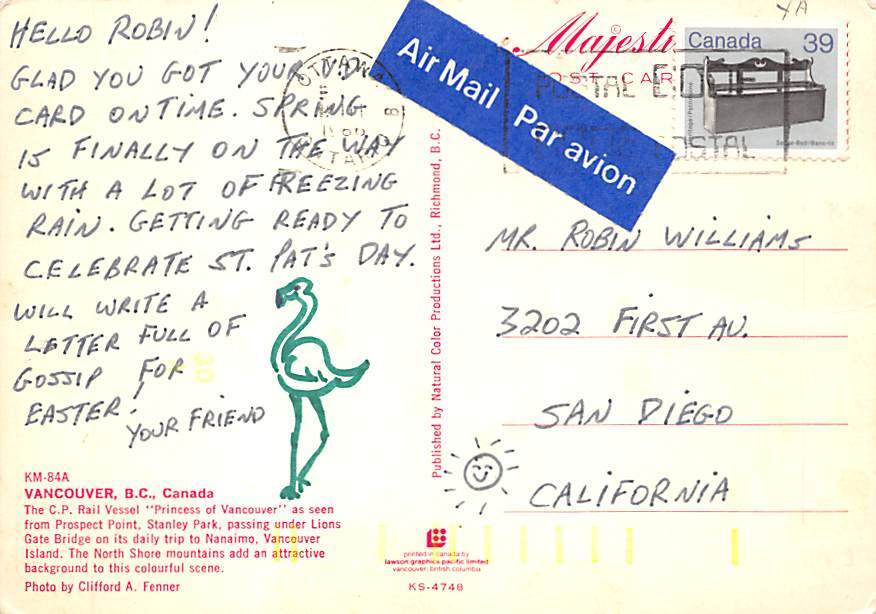 HELLO ROBIN!
GLAD YOU GOT YOUR V.DAY
CARD ON TIME. SPRING
IS FINALLY ON THE WAY
WITH A LOT OF FREEZING
RAIN. GETTING READY TO
CELEBRATE ST. PAT'S DAY.
WILL WRITE A
LETTER FULL OF
GOSSIP FOR
EASTER!
YOUR FRIEND
KM-84A
VANCOUVER, B.C., Canada
The C.P. Rail Vessel "Princess of Vancouver" as seen
from Prospect Point, Stanley Park, passing under Lions
Gate Bridge on its daily trip to Nanaimo, Vancouver
Island. The North Shore mountains add an attractive
background to this colourful scene.
Photo by Clifford A. Fenner
OTTAWA
OTTAWA
Air Mail Par avion
Published by Natural Color Productions Ltd., Richmond, B.C.
Majesti
POST CAR
Canada 39
POSTAL CODE
POSTAL
YA
MR. ROBIN WILLIAMS
3202 FIRST AV.
SAN DIEGO
CALIFORNIA
printed in canada by
lawson graphics pacific limited
vancouver, british columbia
KS-4748